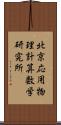 北京応用物
理計算数学
研究所